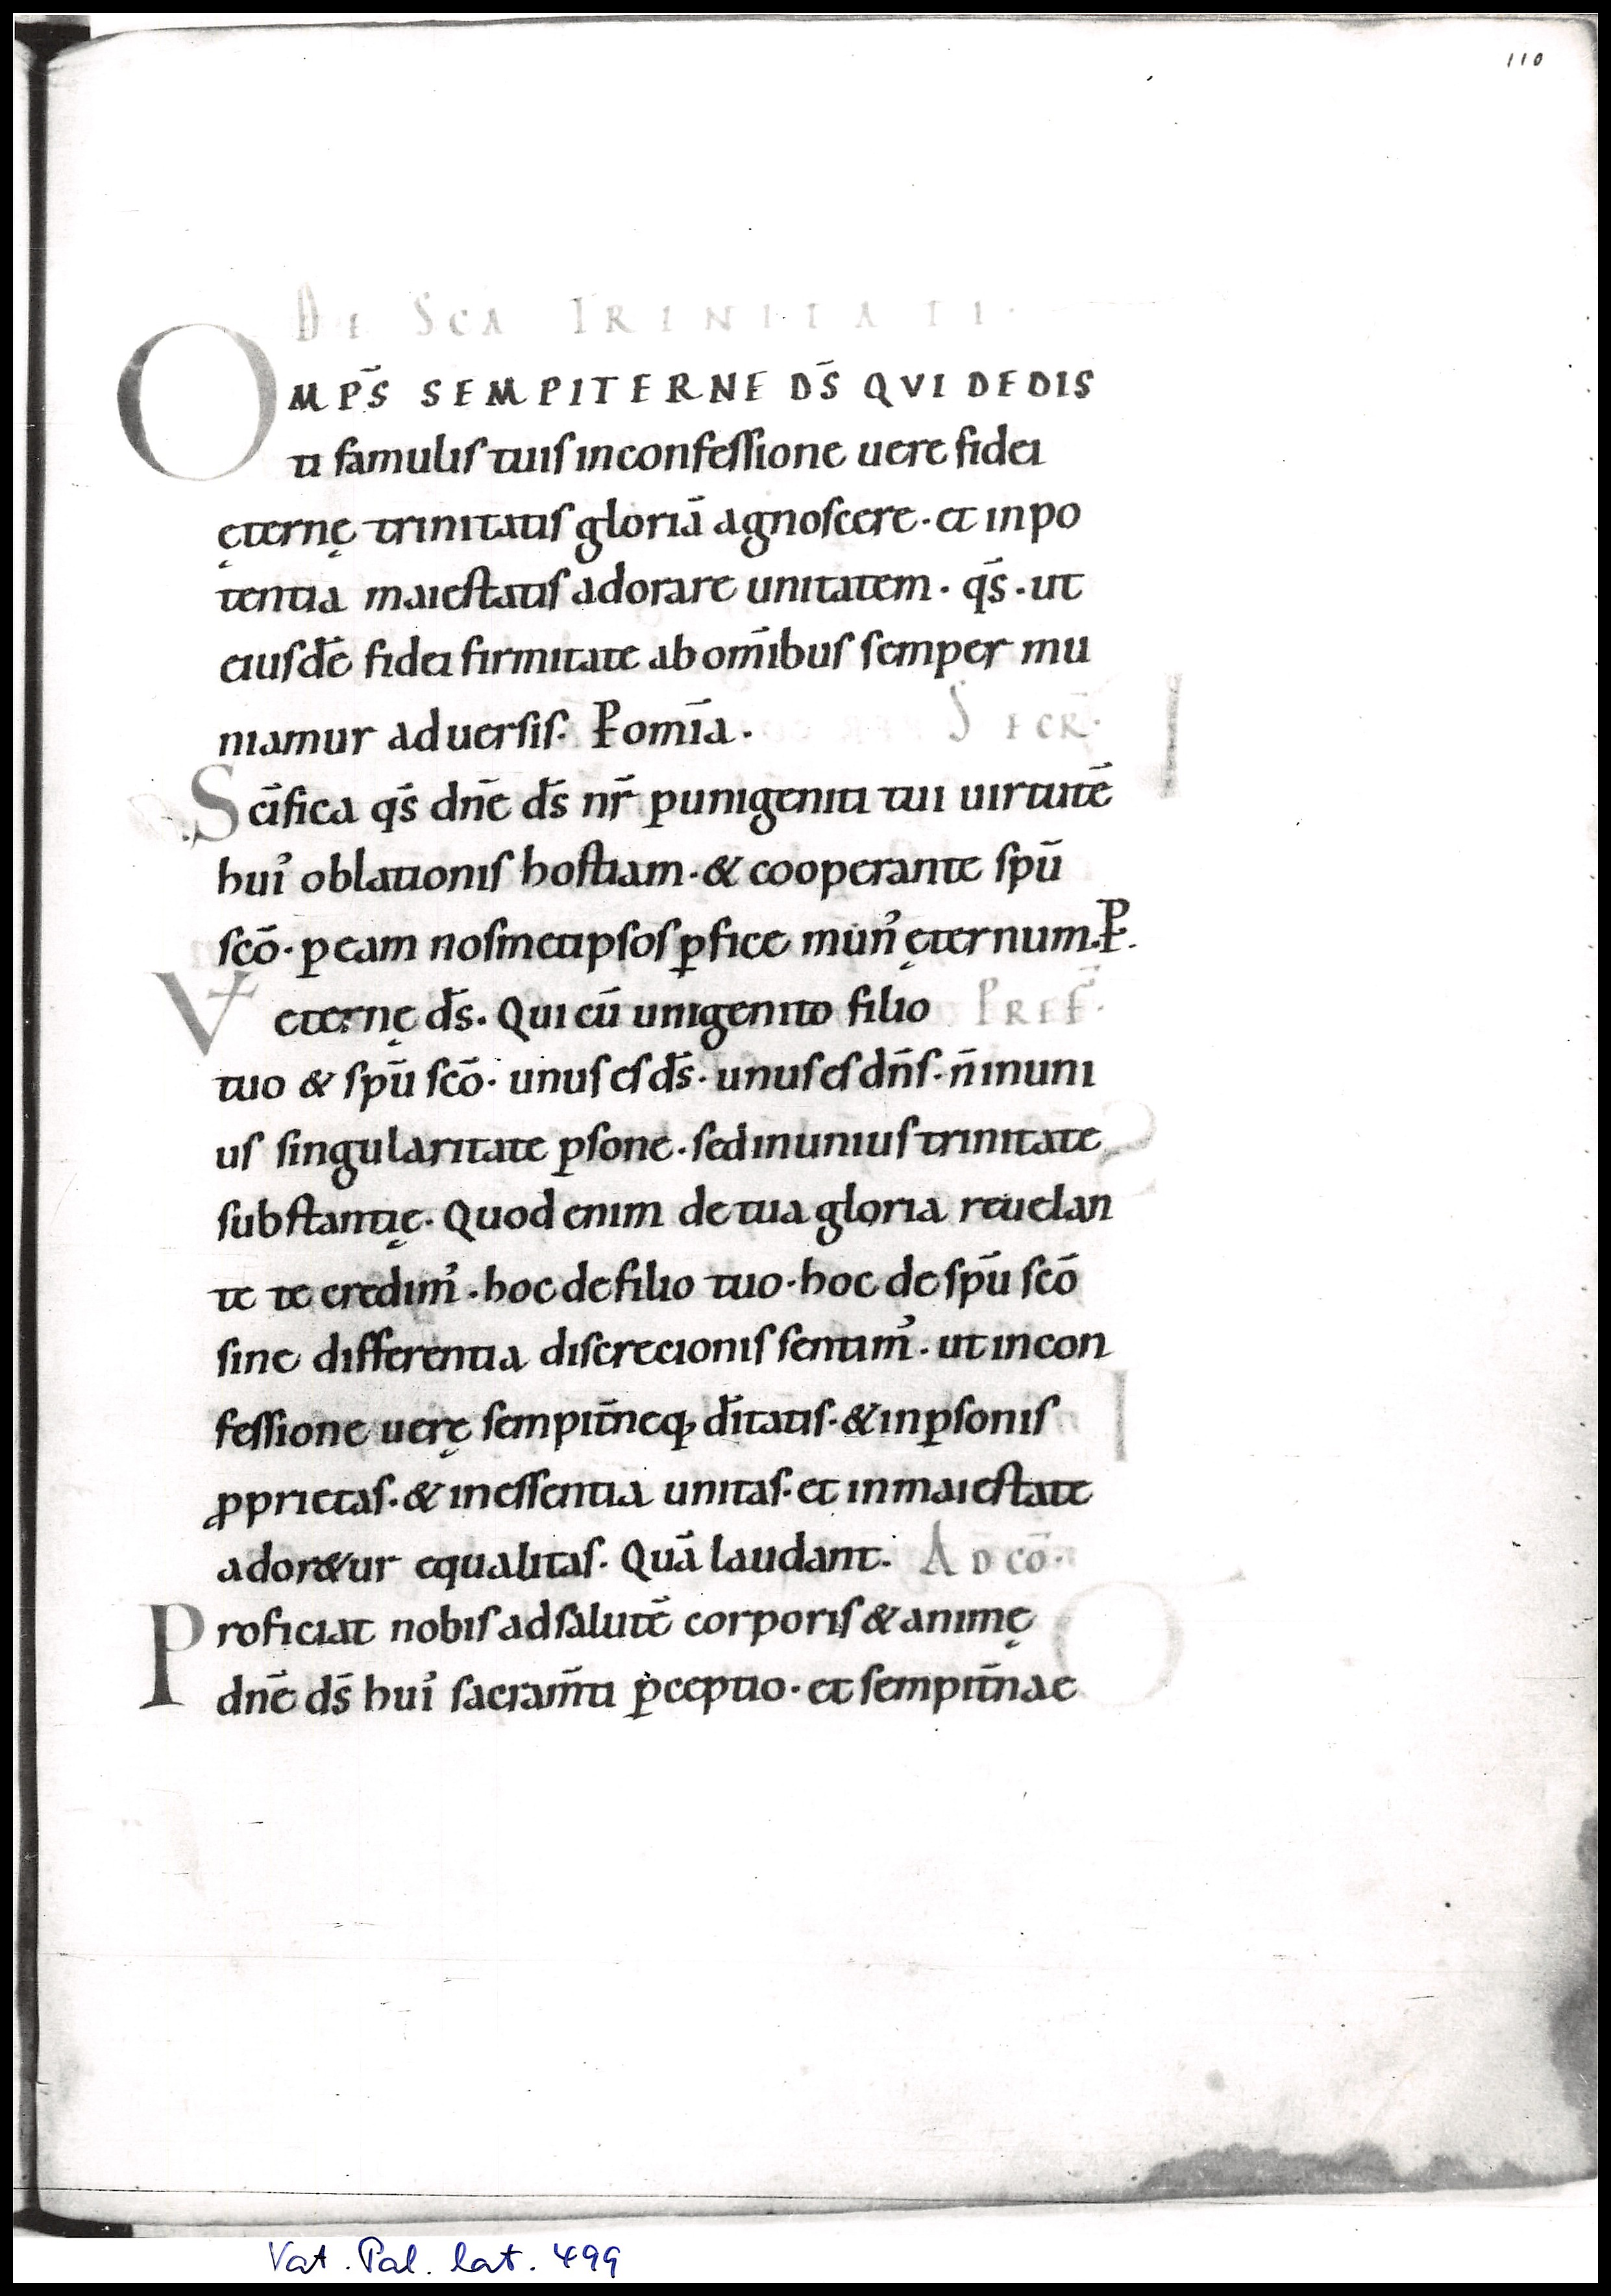 110
DE SCA TRINITATI·
OMPS̄ SEMPITERNE DS̄ QVI DEDIS
ti famulis tuis inconfessione uere fidei
ęternę trinitatis gloriā agnoscere· et inpo
tentia maiestatis adorare unitatem· qs̄· ut
eiusdē fidei firmitate ab om̄ibus semper mu
niamur aduersis· P omīa· SECR̄·
Sc̄ifica qs̄ dn̄e ds̄ nr̄ p unigeniti tui uirtutē
hui᾽ oblationis hostiam· & cooperante spū
scō· p eam nosmetipsos pfice mun᾽ ęternum· P·
V+ eternę ds̄· Qui cū unigenito filio PREF̄·
tuo & spū scō· unus es ds̄· unus es dn̄s· n̄ inuni
us singularitate psone· sed inunius trinitate
substantię· Quod enim de tua gloria reuelan
te te credim᾽· hoc de filio tuo· hoc de spū scō
sine differentia discrecionis sentim᾽· ut incon
fessione uerę sempit̄neq; d̄itatis· & inpsonis
ꝓprietas· & inessentia unitas· et inmaiestate
ador&ur equalitas· Quā laudant· AD CŌ·
Proficiat nobis adsalutē corporis & animę
dn̄e ds̄ hui᾽ sacram̄ti pceptio· et sempit̄nae
Vat. Pal. lat. 499